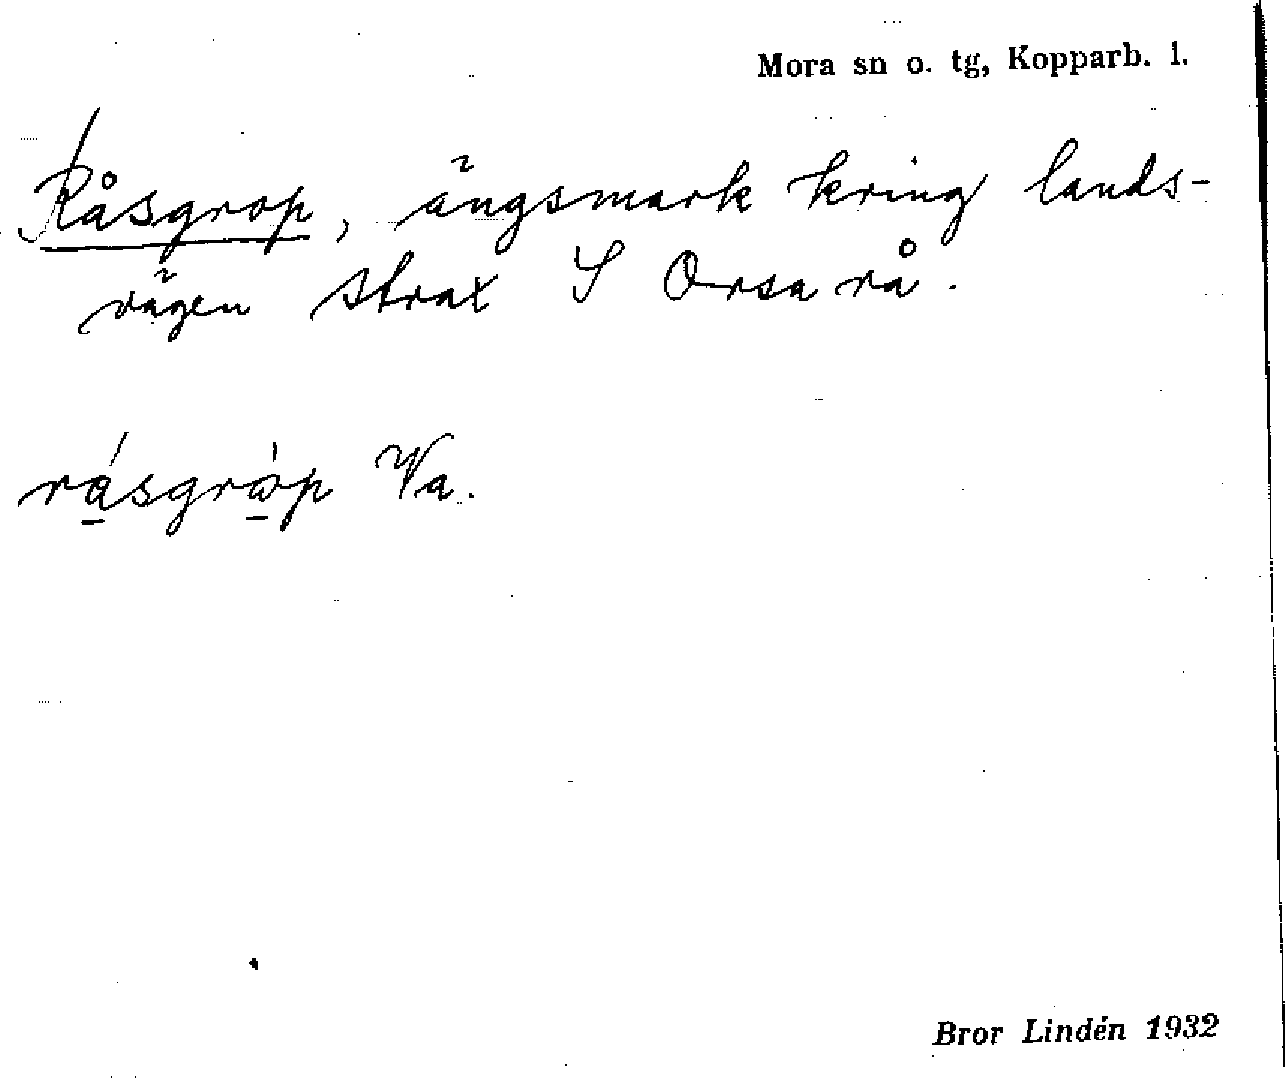 Mora sn o. tg, Kopparb. l.
Råsgrop, ängsmark kring lands-
vägen strax S Orsa rå.
rá̱sgrò̱p Va.
Bror Lindén 1932